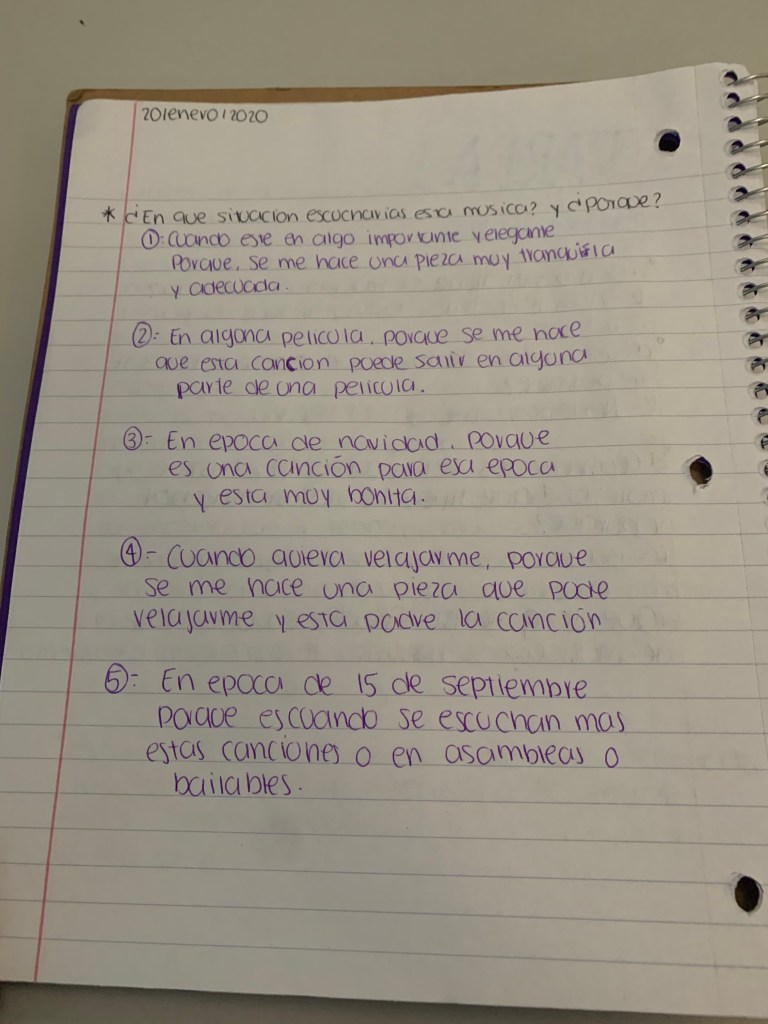 20/enero/2020
* ¿En que situacion escucharias esta musica? y ¿porque?
①: Cuando este en algo importante y elegante
Porque, se me hace una pieza muy tranquila
y adecuada.
②: En alguna pelicula, porque se me hace
que esta cancion puede salir en alguna
parte de una pelicula.
③: En epoca de navidad, porque
es una canción para esa epoca
y esta muy bonita.
④- Cuando quiera relajarme, porque
se me hace una pieza que pude
relajarme y esta padre la canción
⑤: En epoca de 15 de septiembre
porque es cuando se escuchan mas
estas canciones o en asambleas o
bailables.